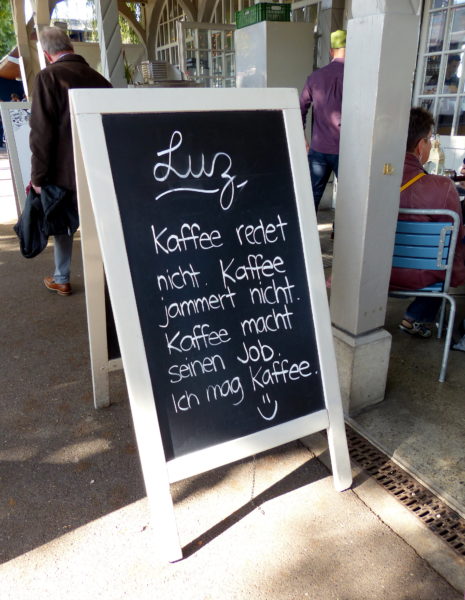 Luz
Kaffee redet
nicht. Kaffee
jammert nicht.
Kaffee macht
seinen Job.
Ich mag Kaffee.
:)